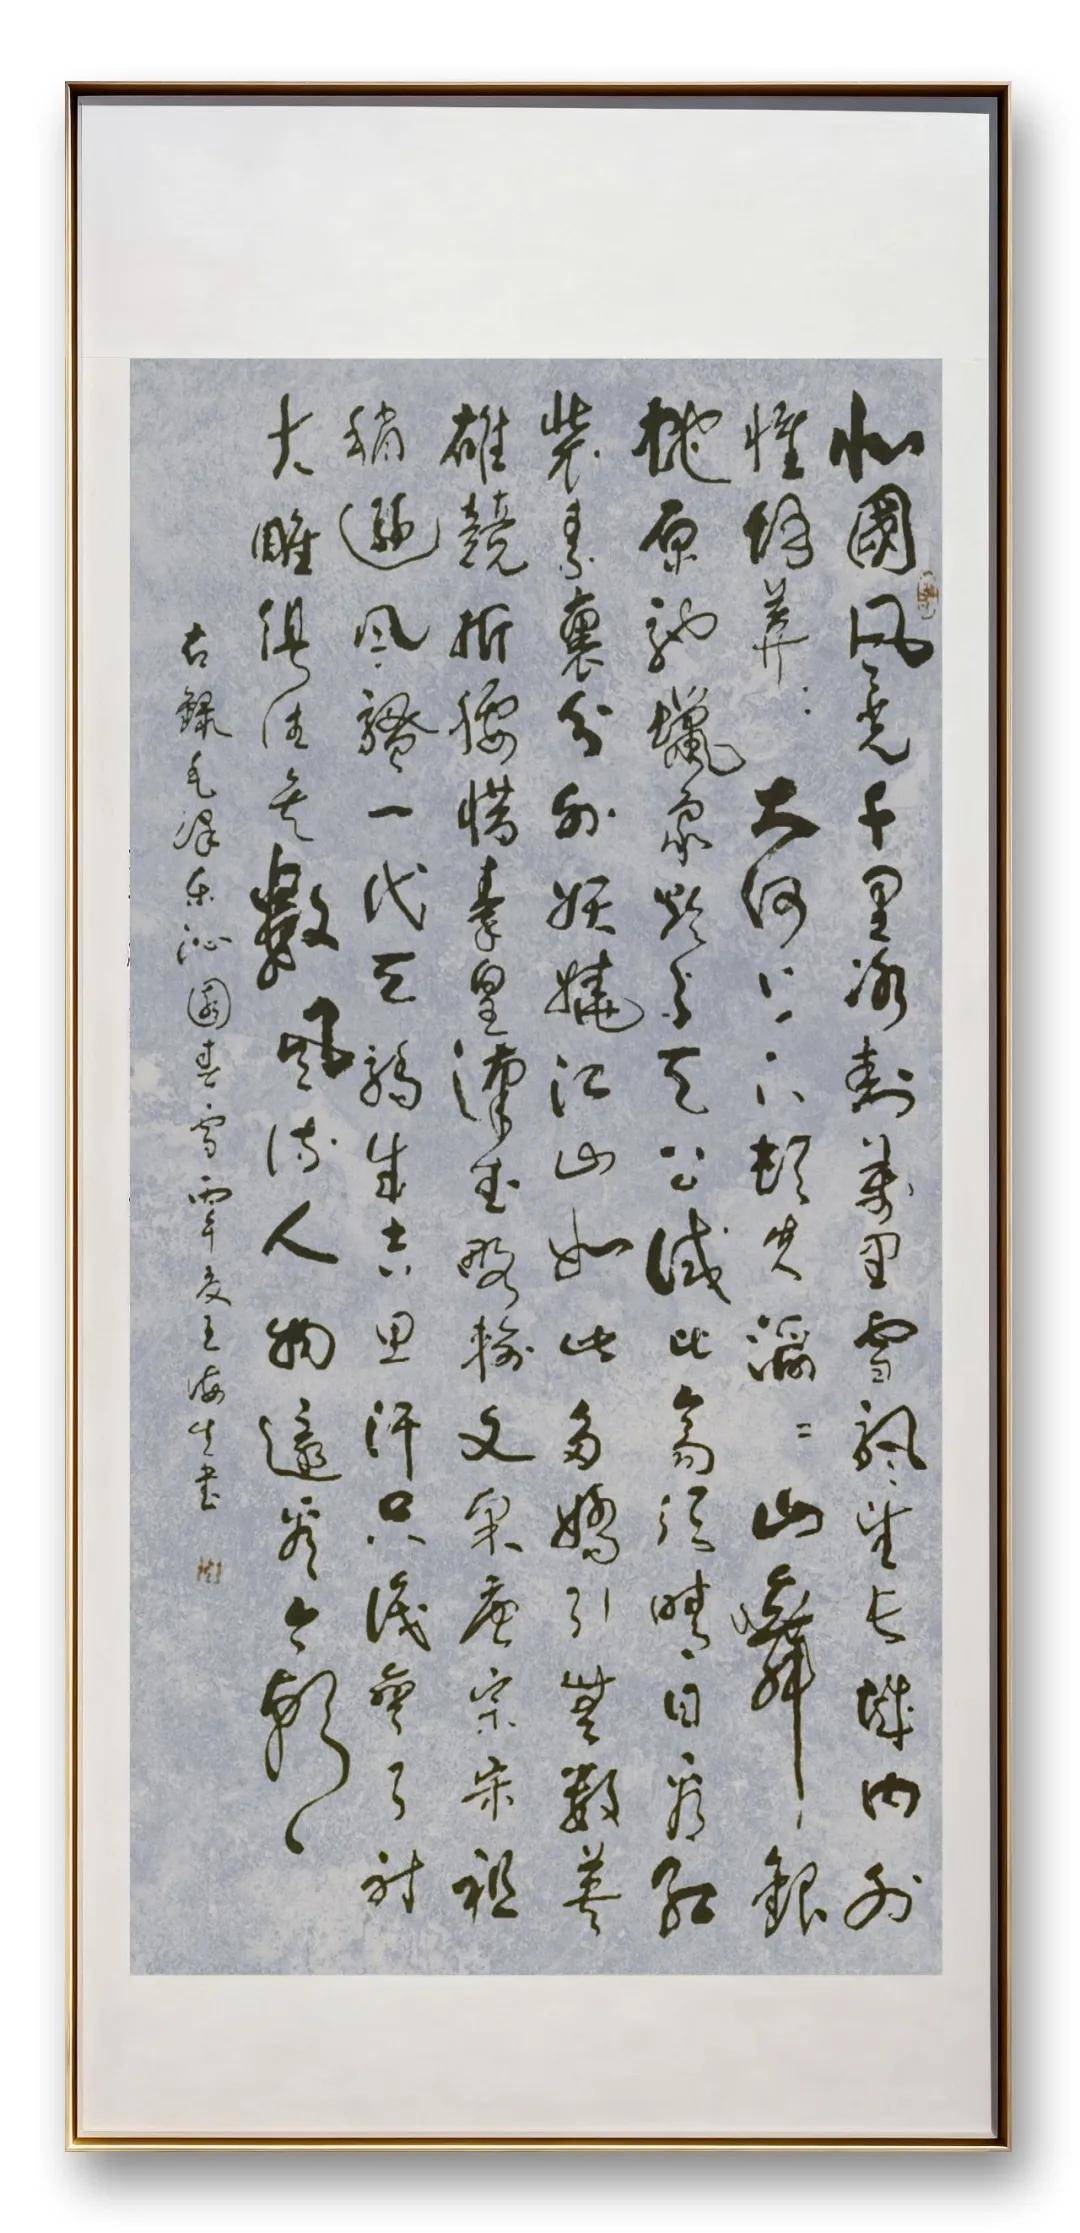 北國風光千里冰封萬里雪飄望長城內外
惟餘莽〻大河上下頓失滔〻山舞銀
蛇原馳蠟象欲与天公試比高須晴日看紅
裝素裹分外妖嬈江山如此多嬌引無數英
雄競折腰惜秦皇漢武略輸文采唐宗宋祖
稍遜風騷一代天驕成吉思汗只識彎弓射
大雕俱往矣數風流人物還看今朝
右錄毛澤東沁園春雪丙午夏王海生書